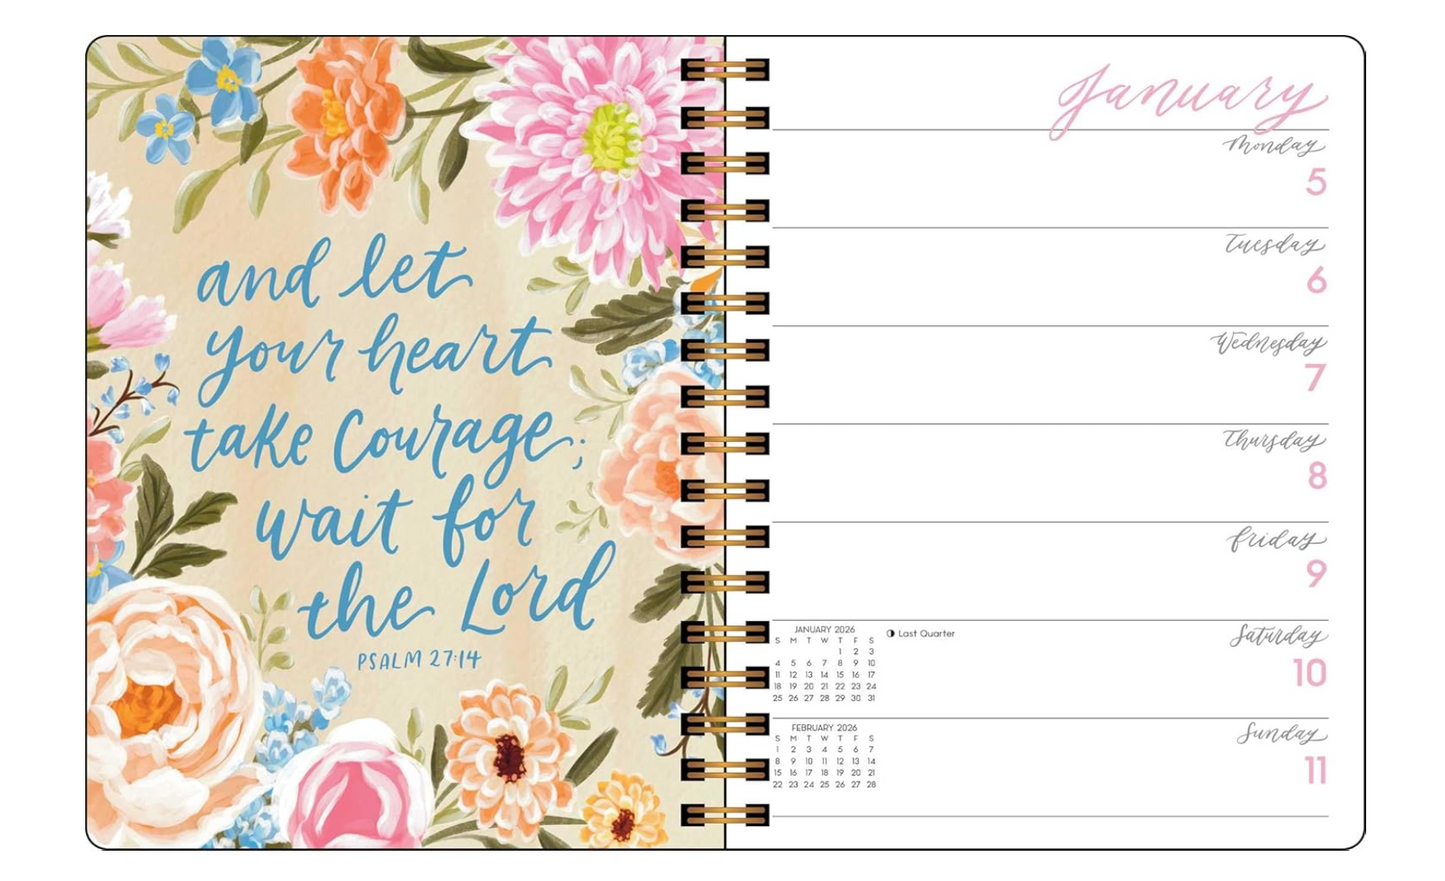 and let
your heart
take courage;
wait for
the Lord
PSALM 27:14
January
Monday
5
Tuesday
6
Wednesday
7
Thursday
8
Friday
9
Saturday
10
JANUARY 2026
S M T W T F S
1 2 3
4 5 6 7 8 9 10
11 12 13 14 15 16 17
18 19 20 21 22 23 24
25 26 27 28 29 30 31
Last Quarter
Sunday
11
FEBRUARY 2026
S M T W T F S
1 2 3 4 5 6 7
8 9 10 11 12 13 14
15 16 17 18 19 20 21
22 23 24 25 26 27 28